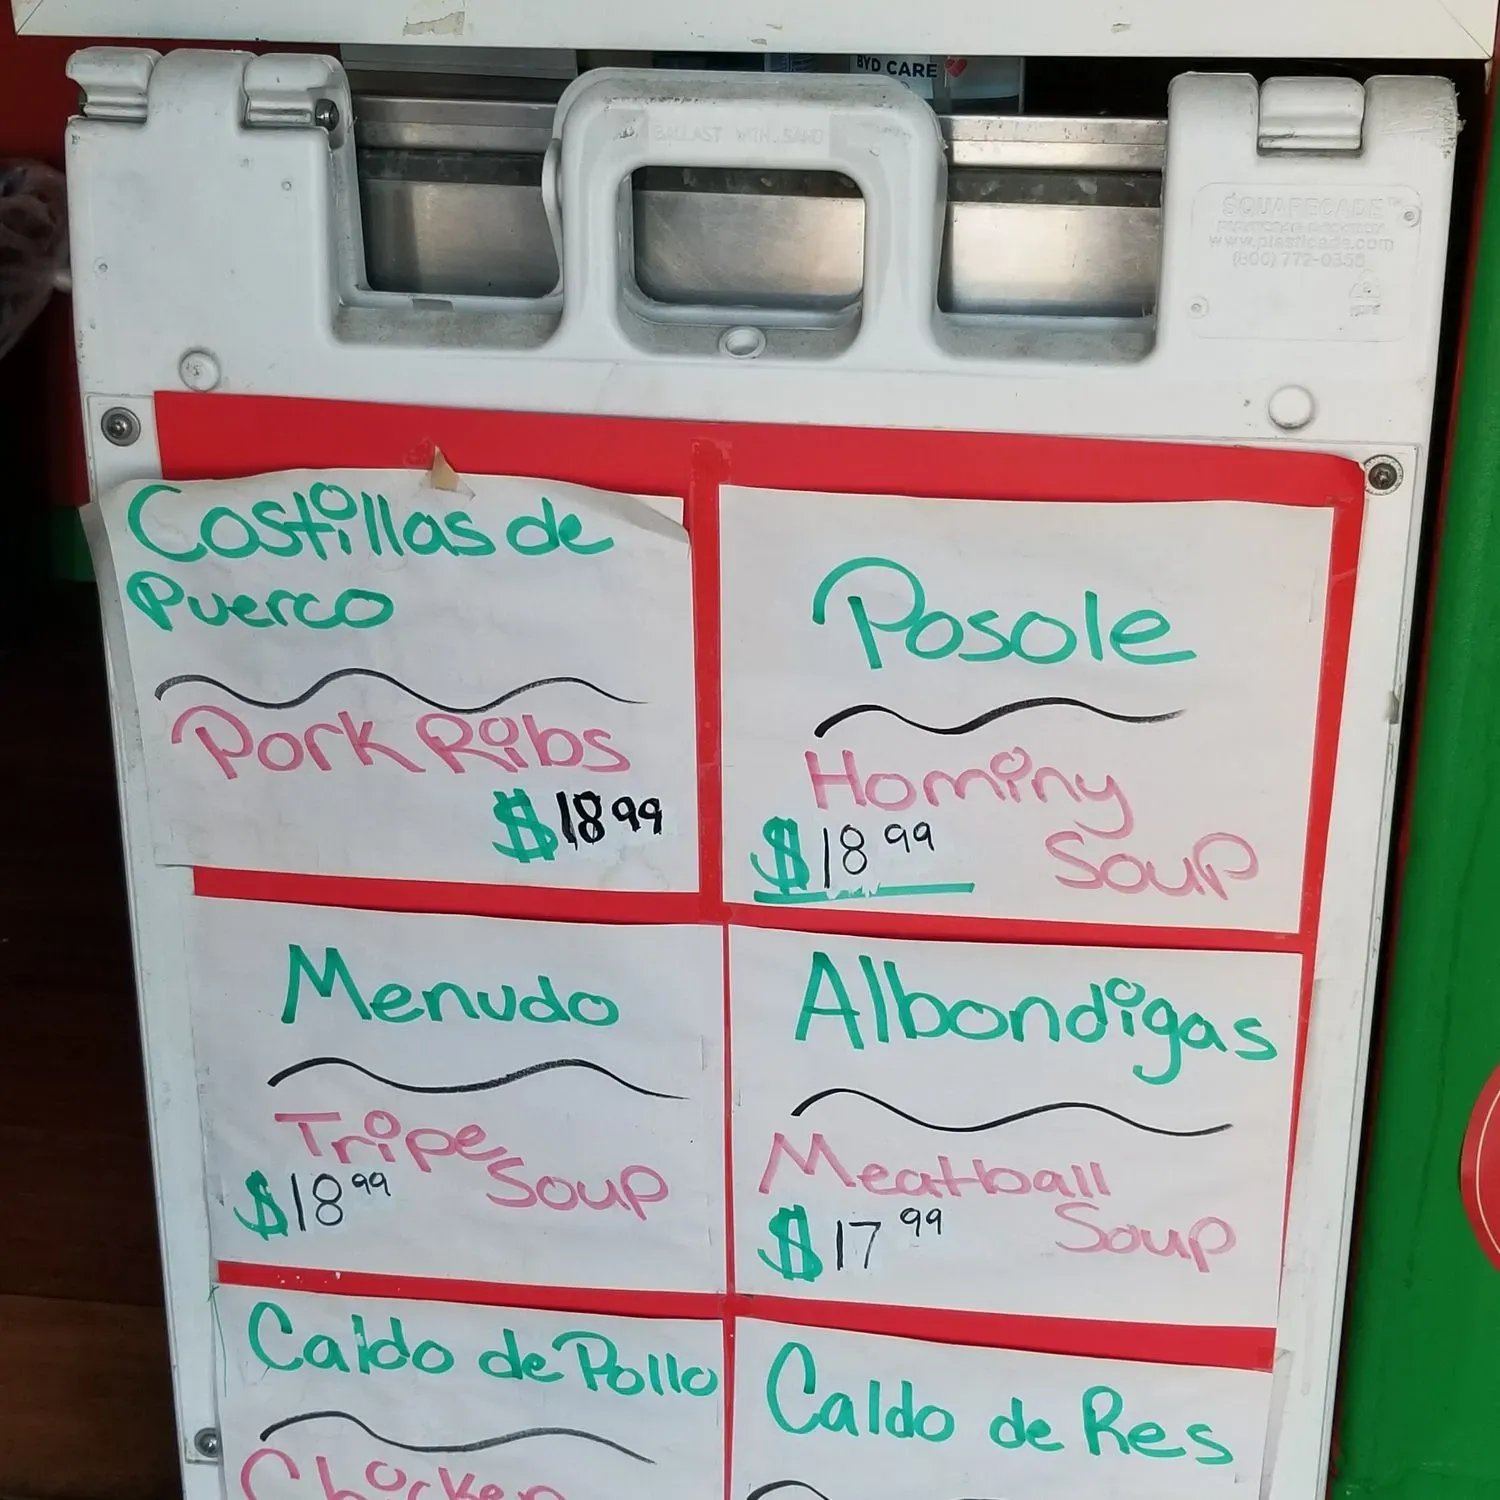 BYD CARE
BALLAST WITH SAND
SQUARECADE™
www.plasticade.com
(800) 772-0355
Costillas de
Puerco
Pork Ribs
$18.99
Posole
Hominy
Soup
$18.99
Menudo
Tripe
Soup
$18.99
Albondigas
Meatball
Soup
$17.99
Caldo de Pollo
Chicken
Caldo de Res